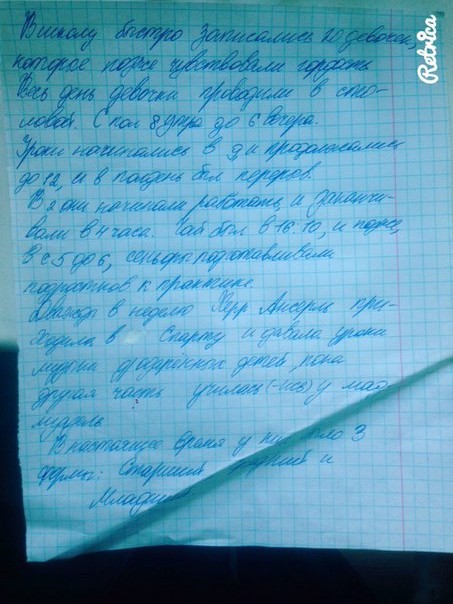 В школу быстро записались 10 девочек,
которые позже чувствовали гордость
Весь день девочки проводили в сто-
ловой. С пол 8 утра до 6 вечера.
Уроки начинались в 9 и продолжались
до 12, и в полдень был перерыв.
В они начинали работать и заканчи-
вали в 4 часа. Чай был в 16.10, и позже,
В с 5 до 6, сеньоры подготавливали
подростков к практике.
Дважды в неделю Херр Ансель при-
ходила в Спарту и давала уроки
музыки детей, пока
другая часть училась (-ись) у мад-
муазель
В настоящее время у них было 3
формы: Старший и
Младший
Retrica